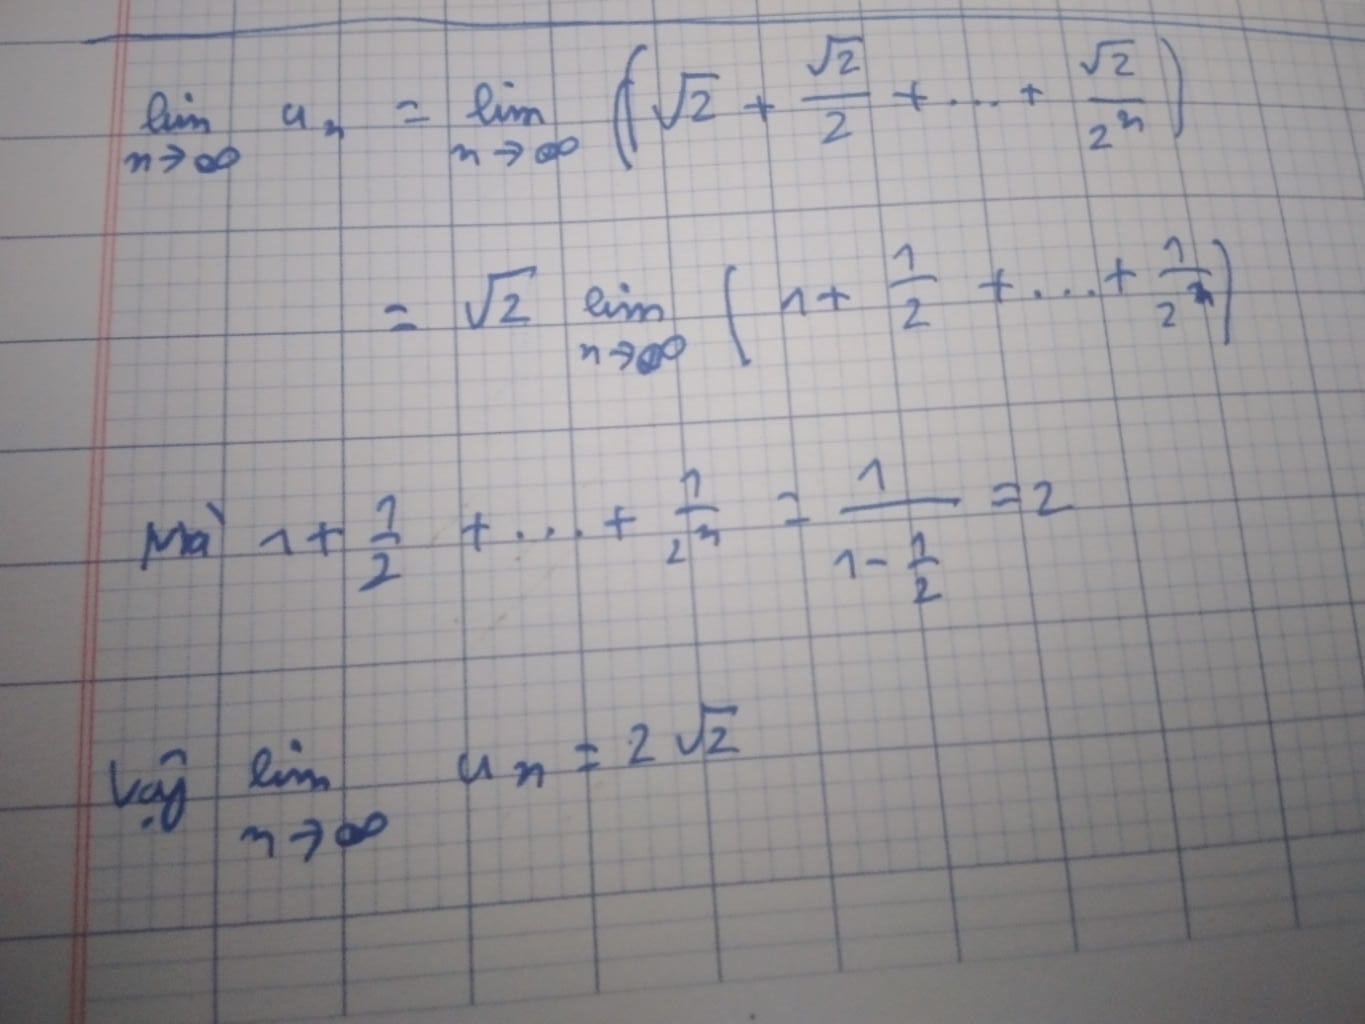 lim n→∞ uₙ = lim n→∞ (√2 + √2/2 + ... + √2/2ⁿ)
= √2 lim n→∞ (1 + 1/2 + ... + 1/2ⁿ)
Mà 1 + 1/2 + ... + 1/2ⁿ = 1/(1 - 1/2) = 2
Vậy lim n→∞ uₙ = 2√2